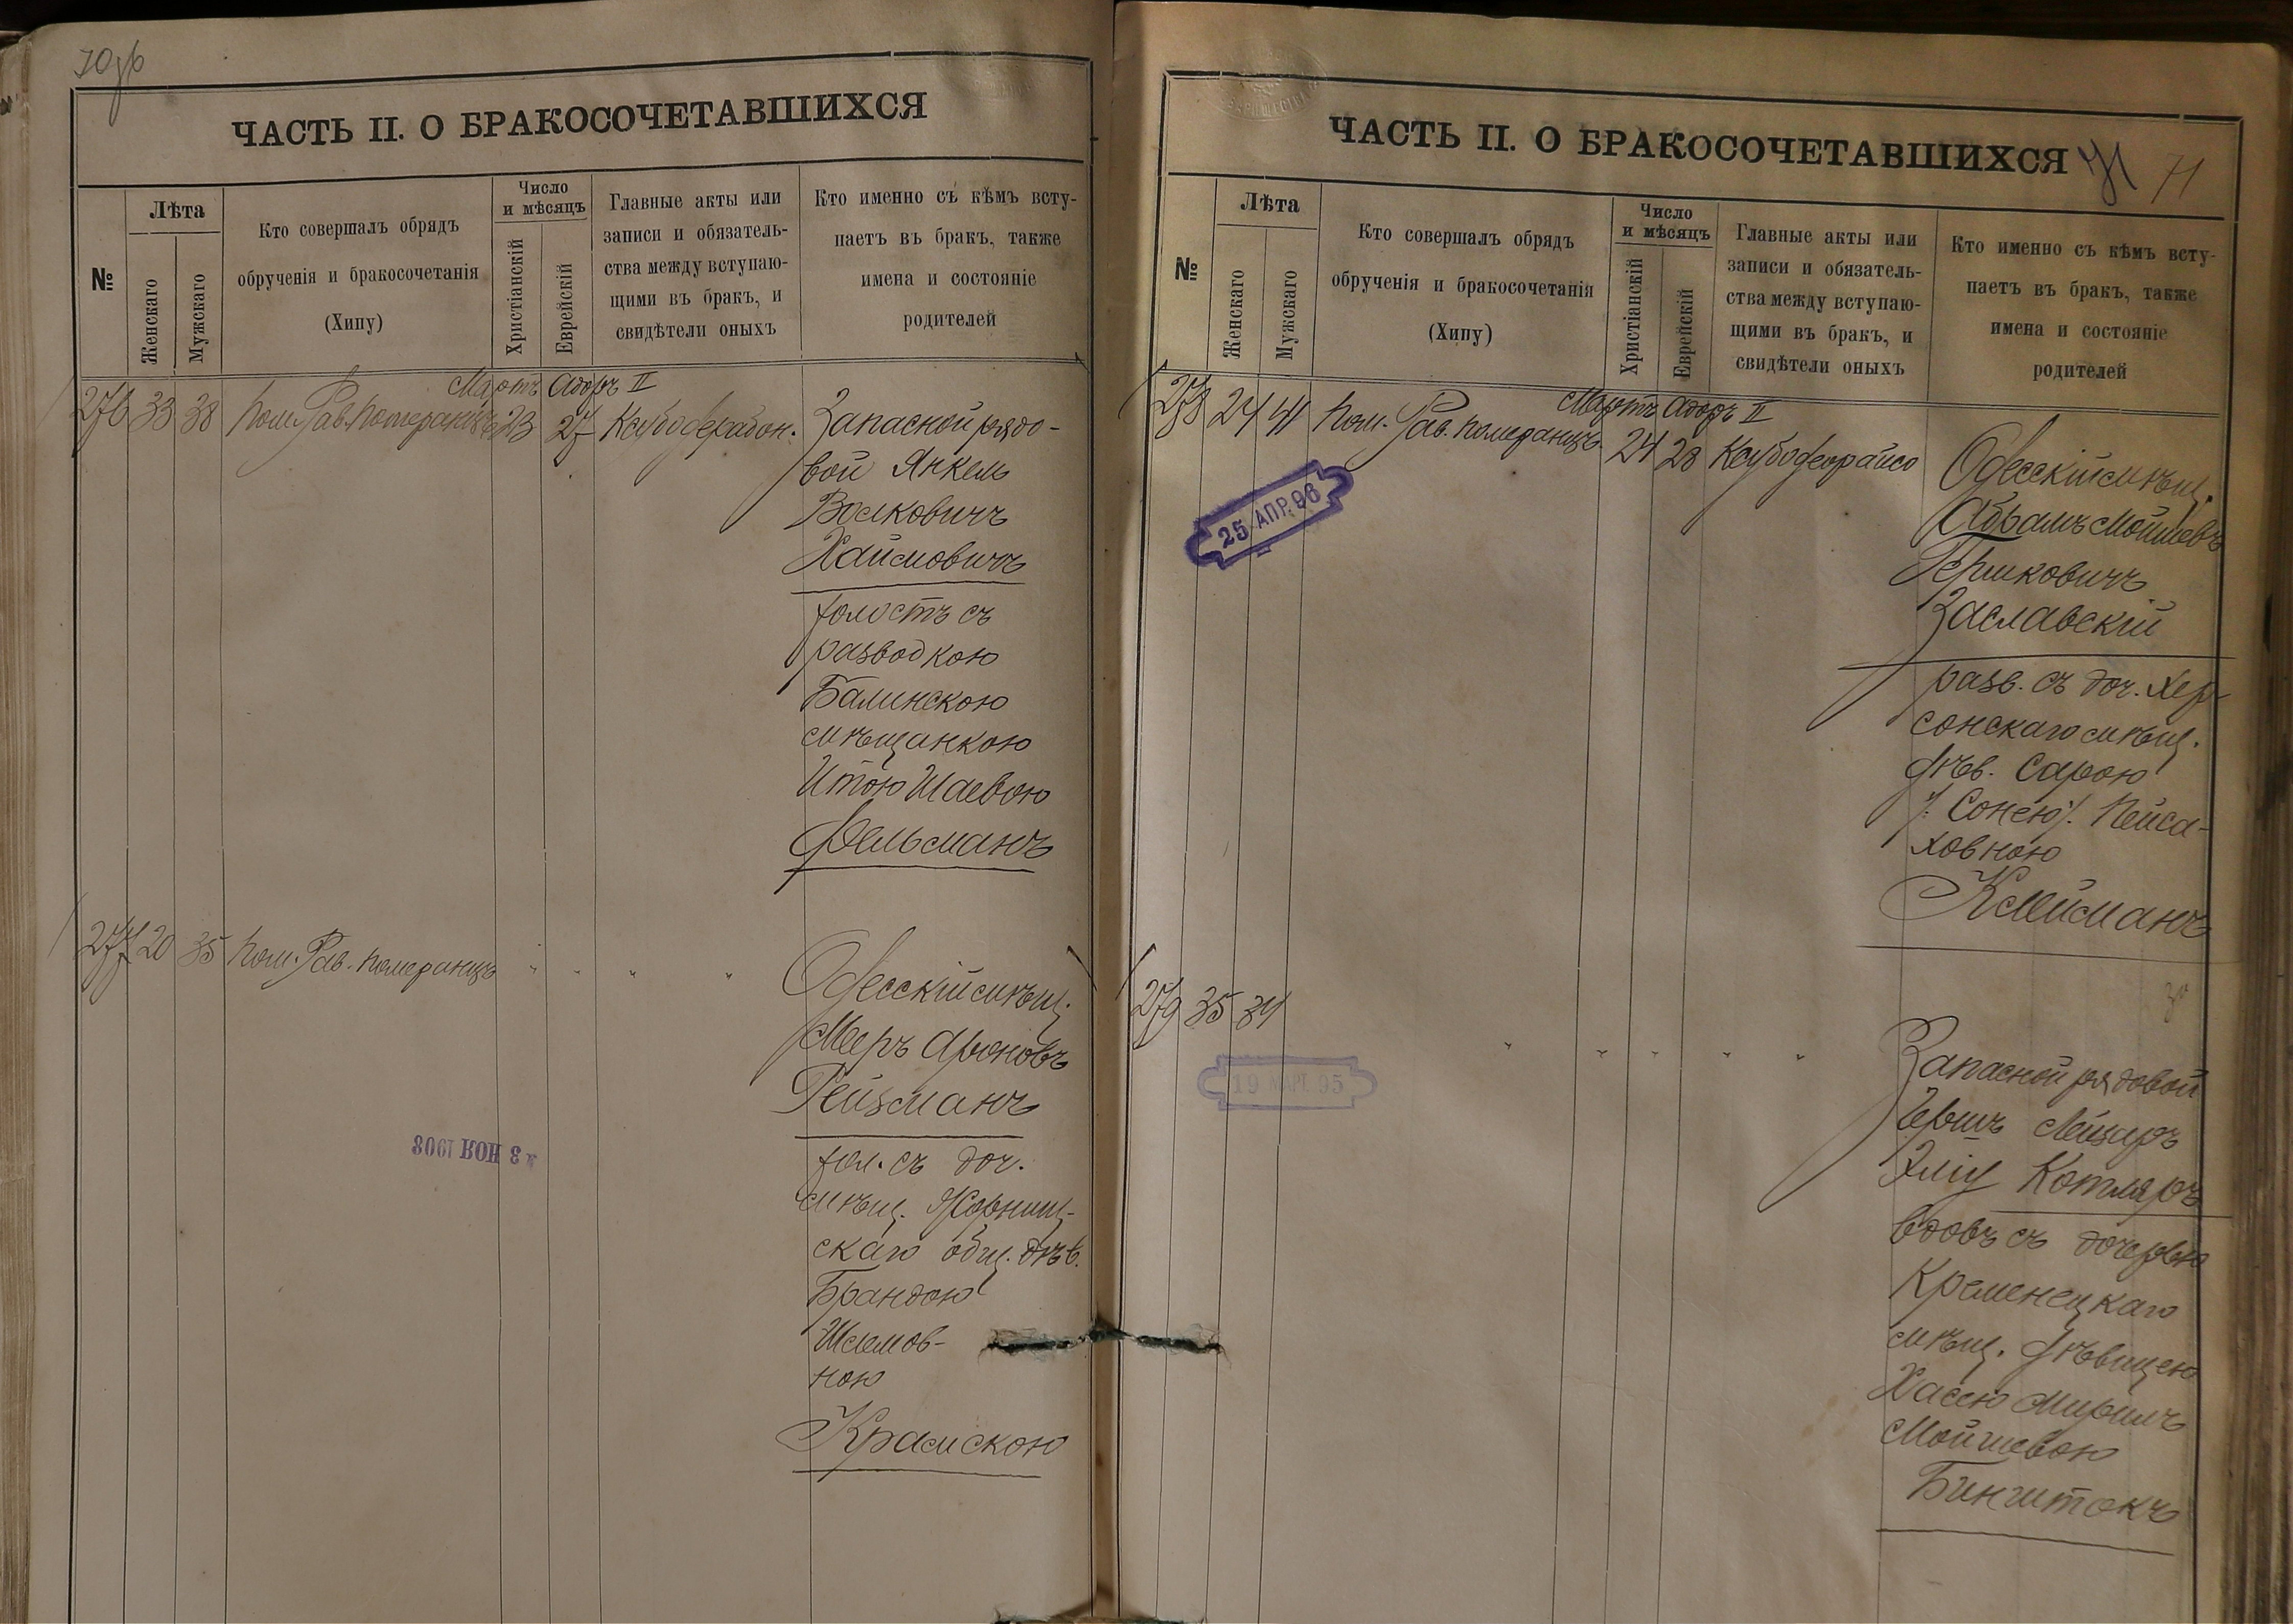 70об
ЧАСТЬ II. О БРАКОСОЧЕТАВШИХСЯ
№
Лѣта
Женскаго
Мужскаго
Кто совершалъ обрядъ
обрученія и бракосочетанія
(Хипу)
Число
и мѣсяцъ
Христіанскій
Еврейскій
Главные акты или
записи и обязатель-
ства между вступаю-
щими въ бракъ, и
свидѣтели оныхъ
Кто именно съ кѣмъ всту-
паетъ въ бракъ, также
имена и состояніе
родителей
Мартъ Адоръ II
276 33 38 Пом. Рав. Померанцъ 23 27
Запасной рядо-
вой Янкель
Волковичъ
Хаимовичъ
холостъ съ
разводкою
Балинскою
мѣщанкою
Итою Шаевою
Фельсманъ
277 20 35 Пом. Рав. Померанцъ " " " "
Одесскій мѣщ.
Мееръ Ароновъ
Рейзманъ
хол. съ доч.
мѣщ. Жорнищ-
скаго общ. дѣв.
Брандою
Шлемов-
ною
Крамскою
3 НОЯ 1908
ЧАСТЬ II. О БРАКОСОЧЕТАВШИХСЯ
71 71
№
Лѣта
Женскаго
Мужскаго
Кто совершалъ обрядъ
обрученія и бракосочетанія
(Хипу)
Число
и мѣсяцъ
Христіанскій
Еврейскій
Главные акты или
записи и обязатель-
ства между вступаю-
щими въ бракъ, и
свидѣтели оныхъ
Кто именно съ кѣмъ всту-
паетъ въ бракъ, также
имена и состояніе
родителей
Мартъ Адоръ II
278 24 41 Пом. Рав. Померанцъ 24 28
Одесскій мѣщ.
Абрамъ Мойшевъ
Гершковичъ
Заславскій
разв. съ доч. Хер-
сонскаго мѣщ.
дѣв. Сарою
/: Сонею :/ Пейса-
ховною
Клейманъ
25 АПР. 96
279 35 34 " " " " "
Запасной рядовой
Гершъ Лейзаръ
Элiу Котляръ
вдовъ съ дочерью
Кременецкаго
мѣщ. дѣвицею
Хасею Миримъ
Мойшевою
Бинштокъ
19 МАРТ. 95